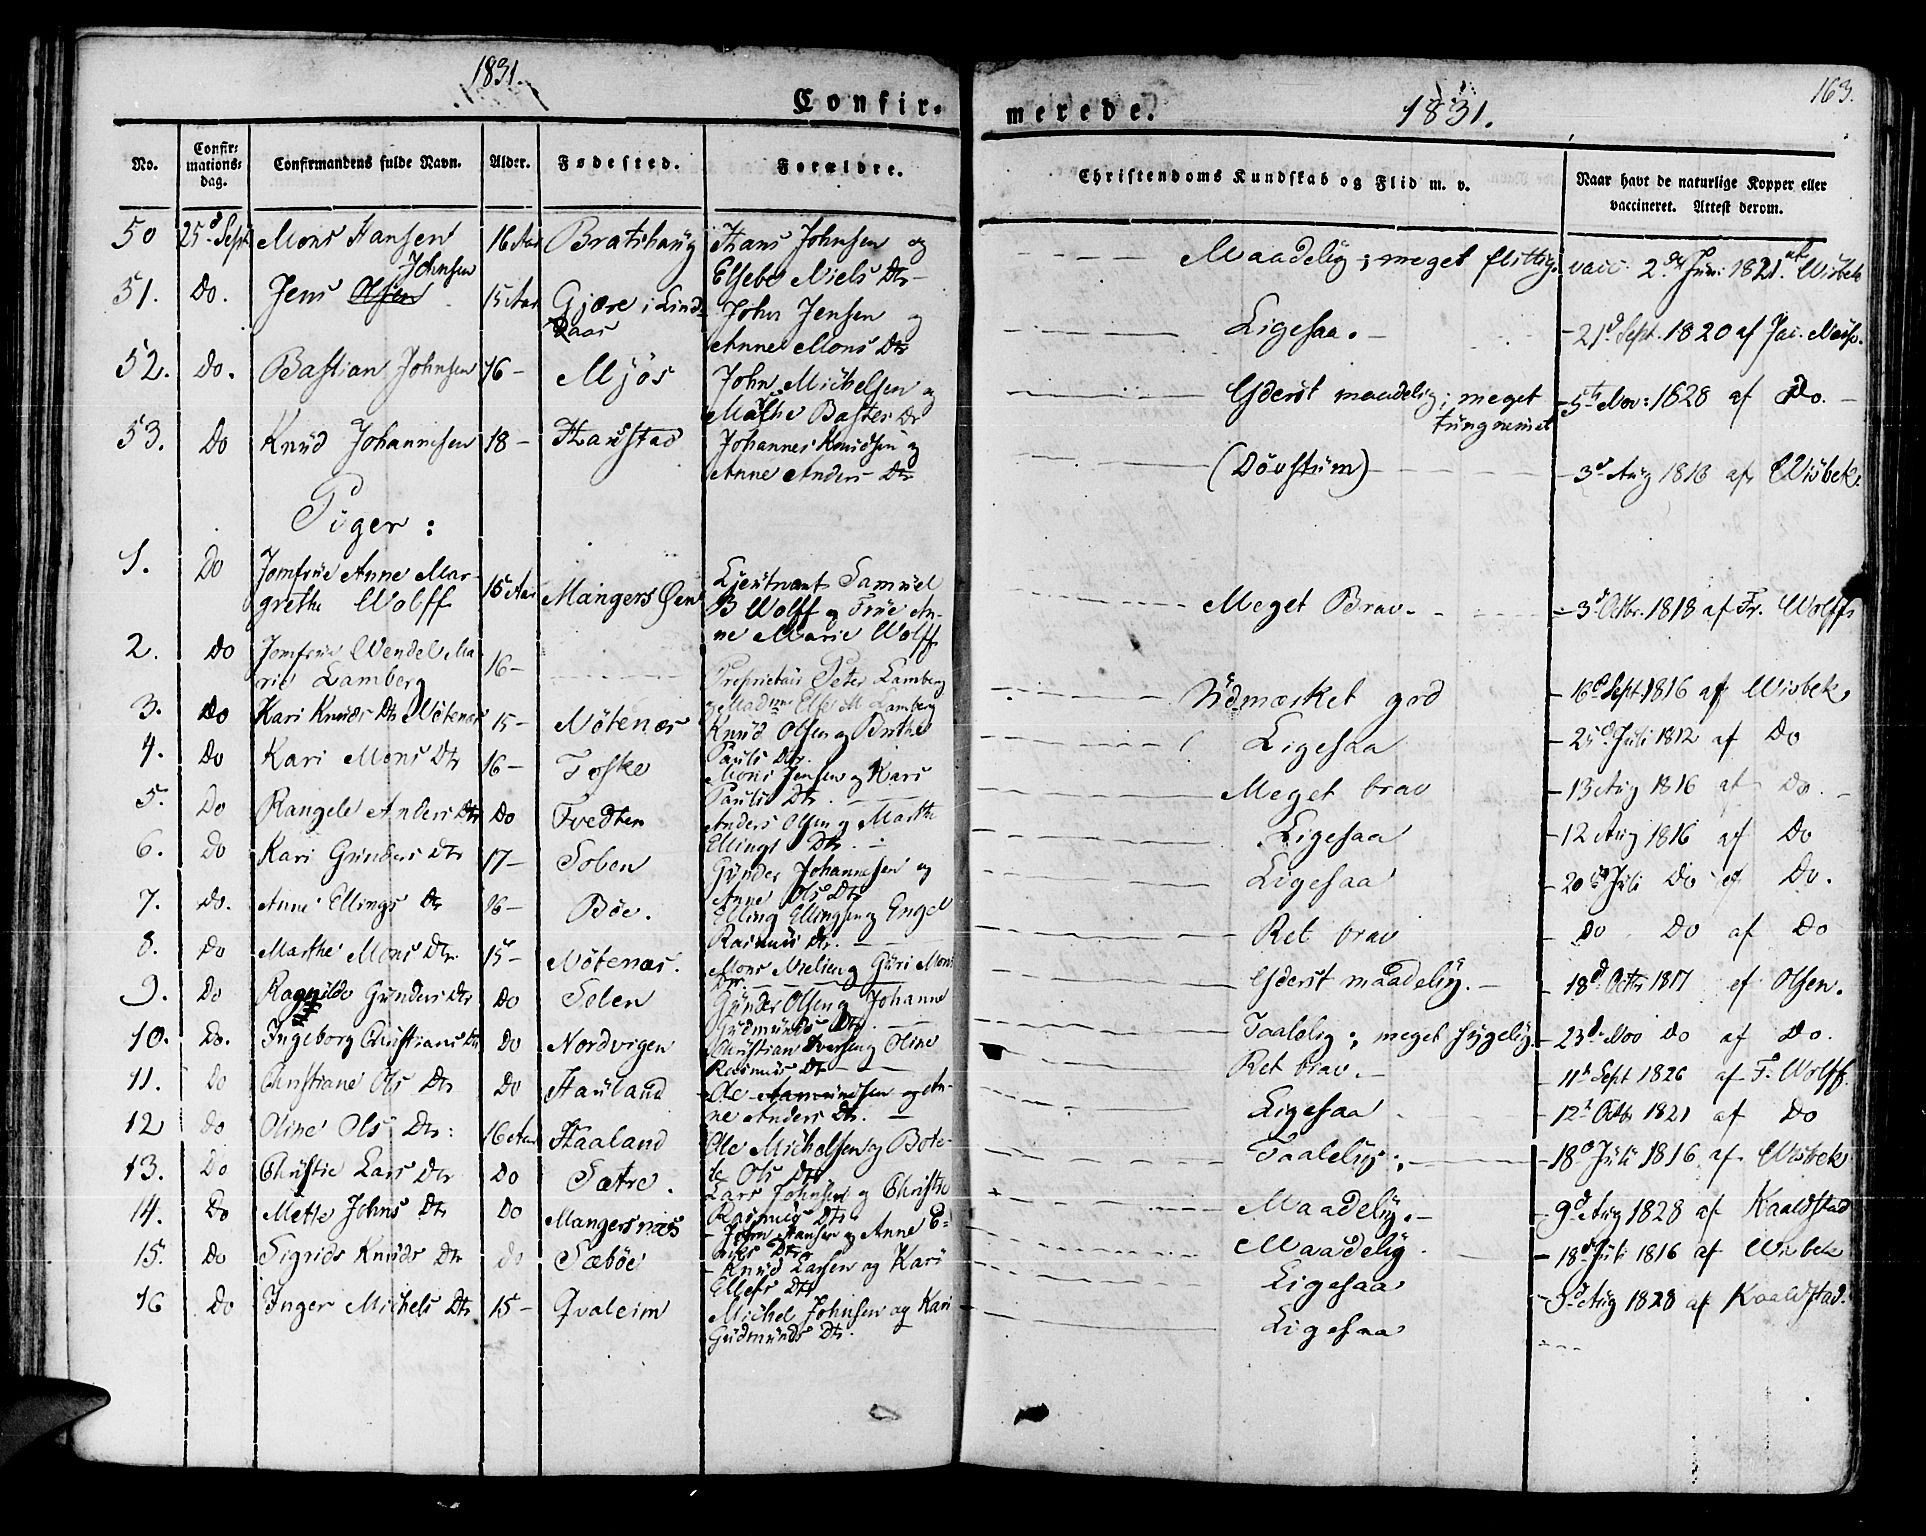 1831.
163.
Confir-
merede.
1831.
No.
Confir-
mations-
dag.
Confirmandens fulde Navn.
Alder.
Fødested.
Forældre.
Christendoms Kundskab og Flid m. v.
Naar havt de naturlige Kopper eller
vaccineret. Attest derom.
50 25d Sept Mons Hansen 16 Aar Bratshaug Hans Johnsen og
Elsebe Niels Dtr
Maadelig; meget flittig. vacc. 2den Juni 1821 af Wisbek
51. Do. Jens Olsen Johnsen 15 Aar Gjære i Lind-
daas
John Jensen og
Anne Mons Dtr
Ligesaa. - 21d Sept. 1820 af Jac.
52. Do. Bastian Johnsen 16 - Mjös John Michelsen og
Marthe Baster Dr
Yderst maadelig; meget
tungnemet
- 5te Nov: 1828 af Do. -
53. Do Knud Johannesen 18 - Haustad Johannes Knudsen og
Anne Anders Dtr
(Dövstum) - 3d Aug 1816 af Wisbek.
Piger:
1. Do Jomfrue Anne Mar-
grethe Wolff
15 Aar Mangers Øen Lieutnant Samuel
B Wolff og Frue An-
ne Marie Wolff
Meget Brav. - 3d Octbr. 1818 af Fr. Wolff
2. Do Jomfrue Wendel Ma-
rie Lamberg
16 - Proprietair Peter Lamberg
og Madme Else M Lamberg
Udmærket god - 16d Sept. 1816 af Wisbek
3. Do Kari Knuds Dtr Nötenæs 15 - Nötenæs Knud Olsen og Brithe
Pauls Dtr.
Ligesaa - 25d Juli 1812 af Do
4. Do Kari Mons Dtr 16 - Toske Mons Jensen og Kari
Pauls Dtr.
Meget brav - 13 Aug 1816 af Do. -
5. Do Rangele Anders Dtr Do Tvedten Anders Olsen og Marthe
Ellings Dtr.
Ligesaa - 12 Aug 1816 af Do
6. Do Kari Gunders Dtr 17 - Soben Gunder Johannesen og
Anne Ols Dtr
Ligesaa - 20d Juli Do af Do.
7. Do. Anne Ellings Dr 16 - Böe. Elling Ellingsen og Engel
Rasmus Dtr.
Ret brav - Do Do af Do
8. Do Marthe Mons Dtr. 15 - Nötenæs. Mons Nielsen og Guri Mons
Dr.
Yderst maadelig. - 18d Octbr 1817 af Olsen.
9. Do Ragnilde Gunders Dtr Do Selen Gunder Olsen og Johanne
Gudmunds Dtr.
Taalelig; meget sygelig. - 23d Nov Do af Do.
10. Do. Ingeborg Christians Dtr Do Nordvigen Christian Iversen og Oline
Rasmus Dtr
Ret brav. - 11te Sept 1826 af F. Wolff.
11. Do Christiane Ols Dtr Do Hauland Ole Aamundsen og An-
ne Anders Dtr.
Ligesaa - 12te Octbr 1821 af Do
12 Do Oline Ols Dtr: 16 Aar Haaland Ole Michelsen og Bote-
le Ols Dtr
Taalelig; - 18d Juli 1816 af Wisbek
13. Do Christie Lars Dtr Do Sætre. Lars Johnsen og Christie
Rasmus Dtr
Maadelig. - 9d Aug 1828 af Kaaldstad
14. Do Mette Johns Dtr Do Mangersnæs John Hansen og Anne E-
Dtr
Maadelig. - 18d Juli 1816 af Wisbek
15. Do Sigrids Knuds Dtr do Sæböe Knud Larsen og Kari
Ellefs Dtr
Ligesaa - 9d Aug 1828 af Kaaldstad.
16 Do Inger Michels Dtr 15 - Qvaleim Michel Johnsen og Kari
Gudmunds Dtr.
Ligesaa